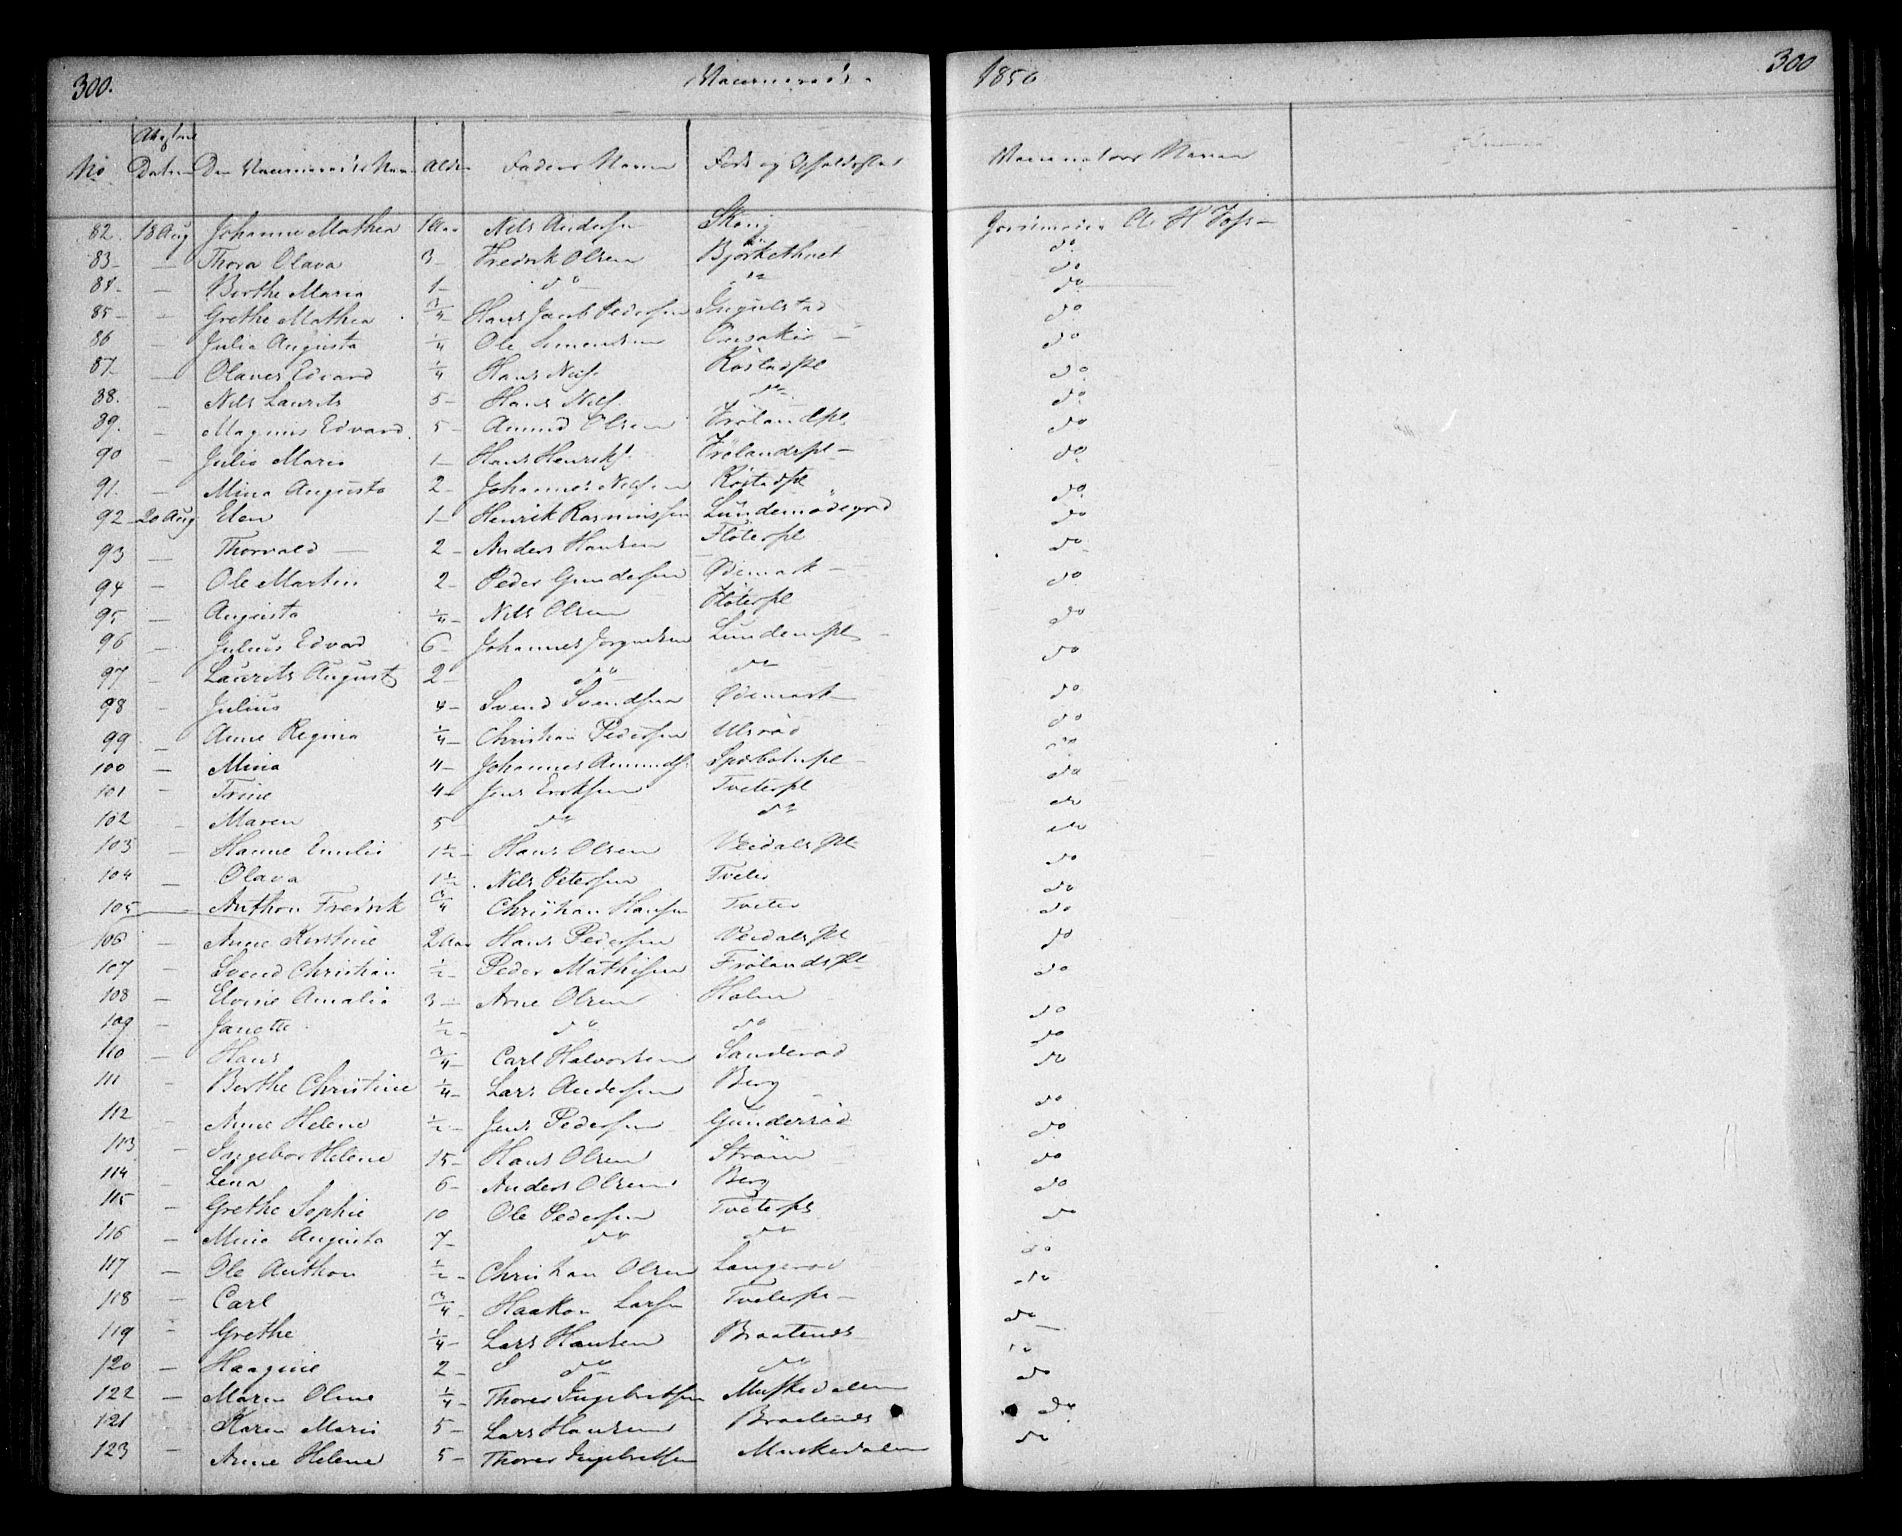 300. Vaccinerede 1850 300
No Datum Den Vaccineredes Navn Alder Faders Navn Føde og Opholdssted Vaccinateurs Navn
82. 18 Aug Johanne Mathea 1 Aar Nils Andersen H
83 — Thora Olava 3 — Fredrik Olsen Björkethvet do
84 — Berthe Maria 1 — do do do
85 — Grethe Mathea 3/4 Hans Jacob Pedersen Ingulstad do
86 — Julie Augusta 1/4 Ole Simensen do
87 — Olaves Edvard 1/4 Hans Nils. Röstadpl do
88. — Nils Laurits 5 — Hans Nils. do do
89. — Magnus Edvard 5 — Amund Olsen Frölandspl do
90 — Julie Marie 1 — Hans Henriks. Frölandspl — do
91. — Mina Augusta 2 — Johannes Nilsen Röstadpl do
92 — 20 Aug Elen 1 — Henrik Rasmussen do
93 — Thorvald — 2 — Anders Hansen Flöterpl do
94 — Ole Martin 2 — Peder Gundersen Ødemark — do
95 — Augusta 1/4 — Nils Olsen Flöterpl do
96 — Julius Edvard 6 — Johannes Jorgensen Lundempl do
97 — Laurits August 2 — do do do
98 — Julius 4 — Svend Svendsen Ødemark do
99 — Anne Regina 1/4 — Christian Pedersen Ulsröd do
100 — Mina 4 — Johannes Amunds. do
101 — Trine 4 — Jens Eriksen Tveterpl do
102 — Maren 5 do do do
103 — Hanne Emilie 1 1/2 — Hans Olsen Veidalspl do
104 — Olava 1 1/2 Nils Petersen Tveter do
105 — Anthon Fredrik 3/4 Christian Hansen Tveter do
106 — Anne Kirstine 2 Aar Hans Pedersen Veidalspl do
107 — Svend Christian 1/2 — Peder Mathisen Frölandspl do
108 — Elvine Amalia 3 — Arne Olsen Holm do
109 — Janette 1/2 — do do do
110 — Hans 3/4 — Carl Halvorsen Sanderöd do
111 — Berthe Christine 1/4 — Lars Andersen Berg do
112 — Anne Helene 1/2 — Jens Pedersen Gunderröd do
113 — Ingebor Helene 15 — Hans Olsen Ström do
114 — Lena 6 — Anders Olsen Berg do
115 Grethe Sophie 10 Ole Pedersen Tveterpl do
116 — Mina Augusta 7 — do do do
117 — Ole Anthon 1/2 — Christian Olsen Langeröd do
118 — Carl 3/4 — Haakon Larsen Tveterpl — do
119 — Grethe 1/4 — Lars Hansen Braatends do
120 — Haagine 2 — do do do
122 — Maren Oline 1/4 — Thores Ingebretsen Muskedalen do
121 — Karen Marie 5 — Lars Hansen Braatends do
123 — Anne Helene 5 — Thores Ingebretsen Muskedalen do